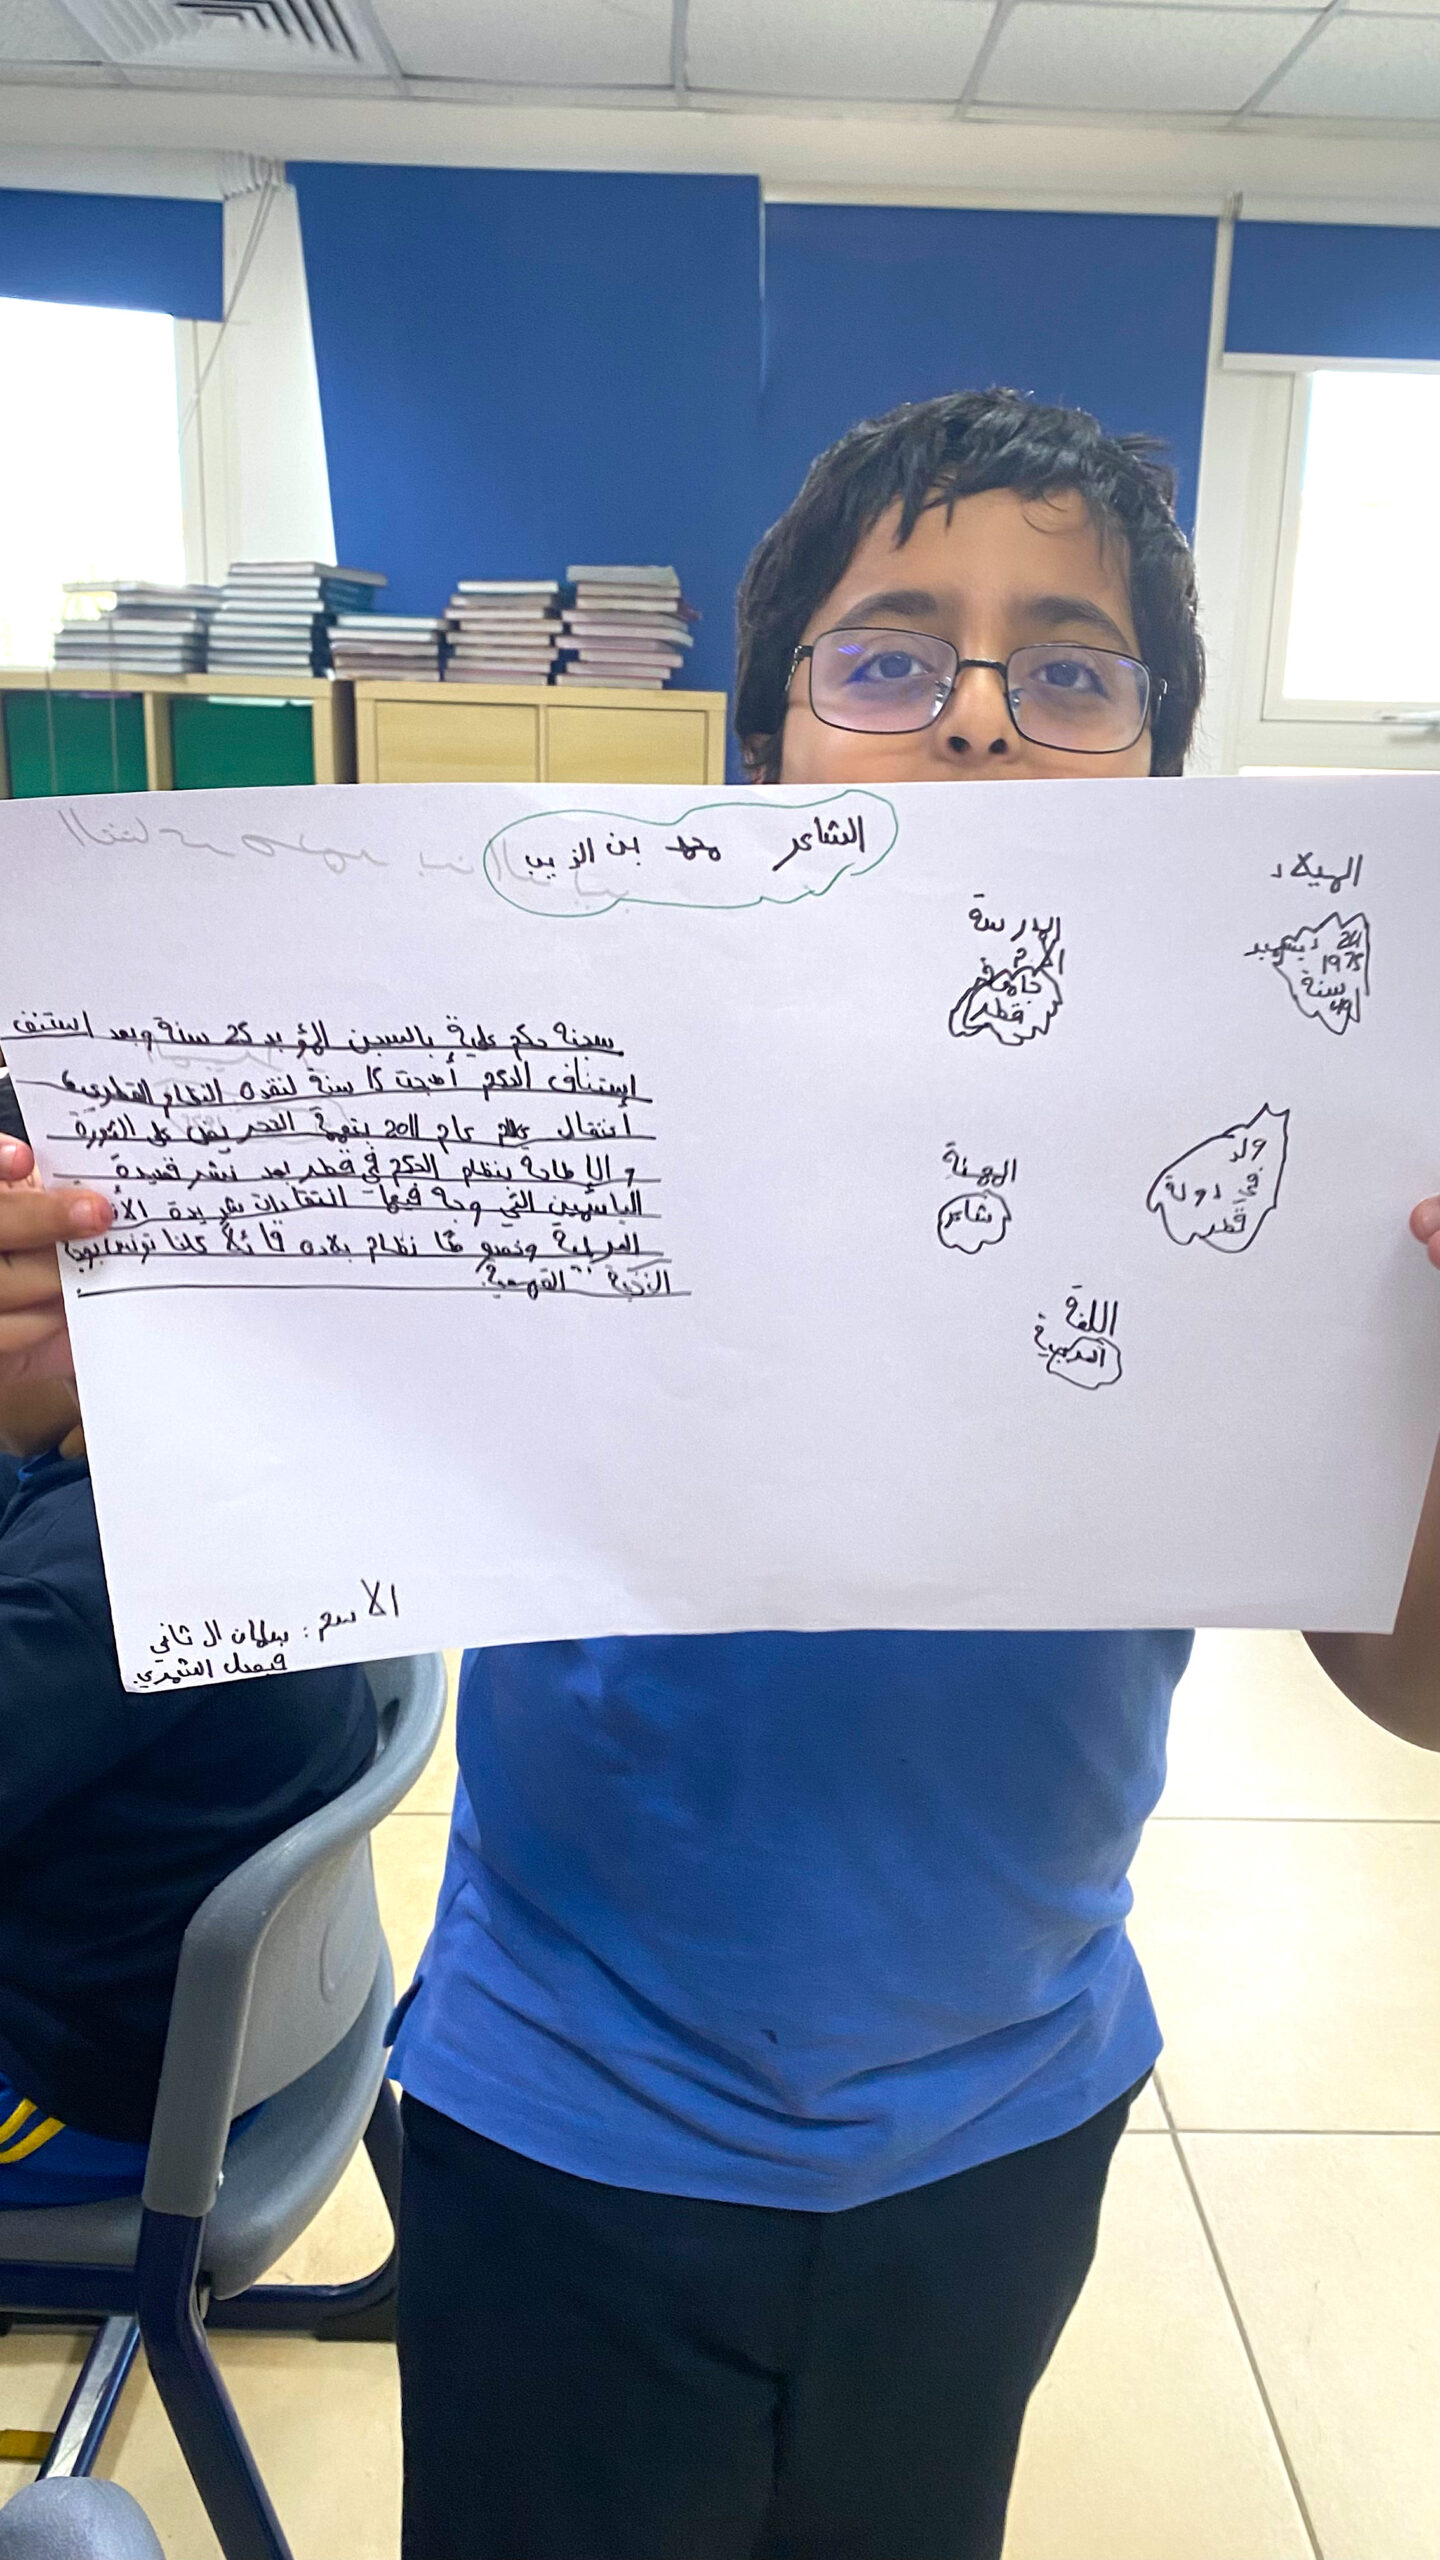 الشاعر محمد بن الذيب
الميلاد
24 ديسمبر
1975
سنة
49
المدرسة
الأم
جامعة
قطر
ولد
في دولة
قطر
المهنة
شاعر
اللغة
العربية
سجنة حكم علية بالسجن المؤبد 25 سنة وبعد استنف
إستناف الحكم أصبحت 15 سنة لنقده النظام القطري
أعتقال عام 2011 بتهمة التحريض على الثورة
و الاطاحة بنظام الحكم في قطر بعد نشر قصيدة
الياسمين التي وجه فيها انتقادات شديدة
العربية وخصوصًا نظام بلاده قائلاً كلنا تونس بوجه
النخبة القمعية.
الاسم: سلمان ال ثاني
فيصل الشمري